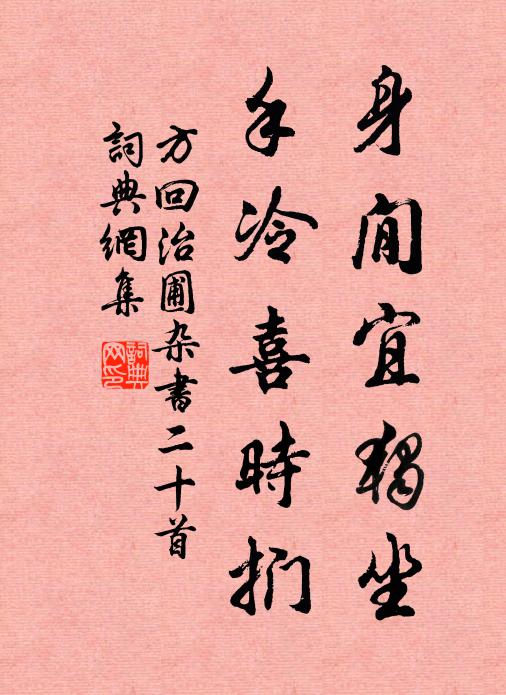 身閒宜獨坐
手冷喜時捫
方回治圃杂書二十首
詞典網集
詞典网印